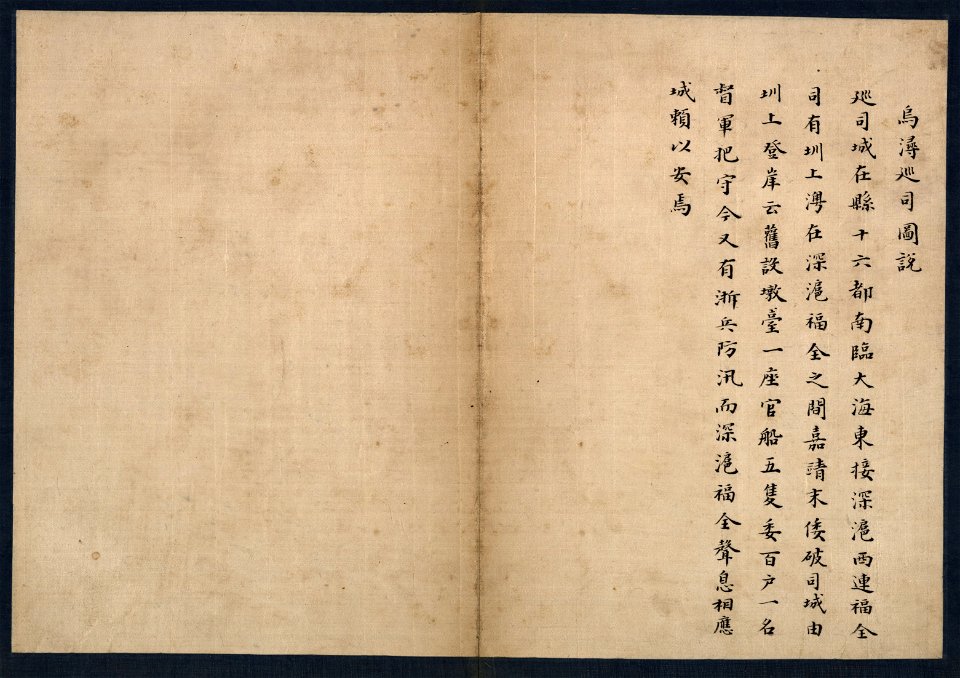 烏潯巡司圖說
巡司城在縣十六都南臨大海東接深滬西連福全
司有圳上灣在深滬福全之間嘉靖末倭破司城由
圳上登岸云舊設墩臺一座官船五隻委百户一名
督軍把守今又有浙兵防汛而深滬福全聲息相應
城賴以安焉